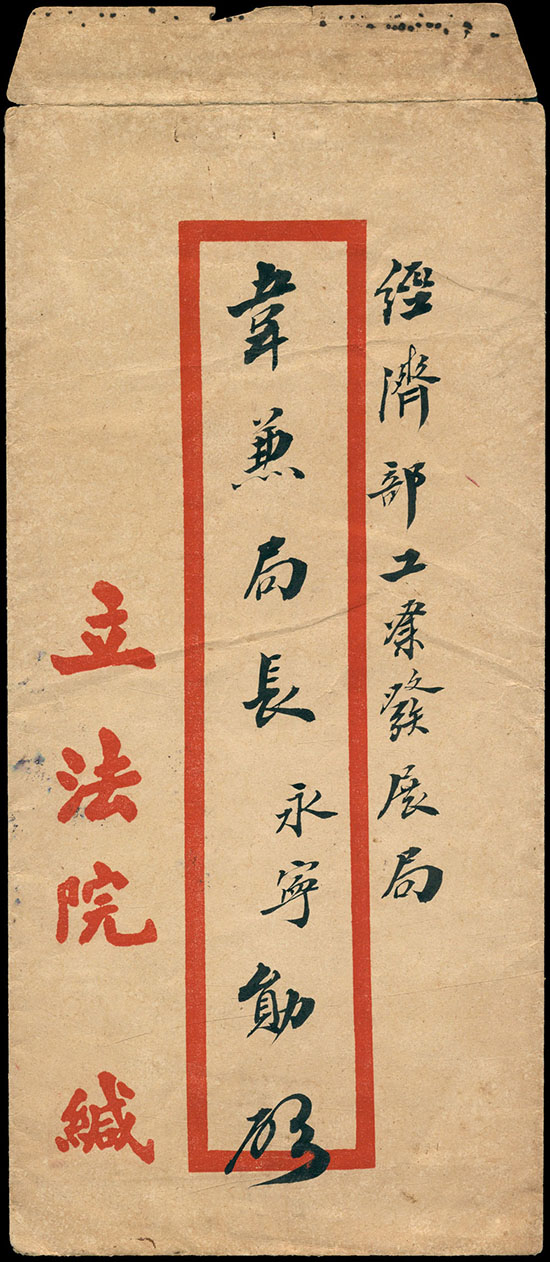 經濟部工業發展局
韋兼局長永寧勛啓
立法院緘